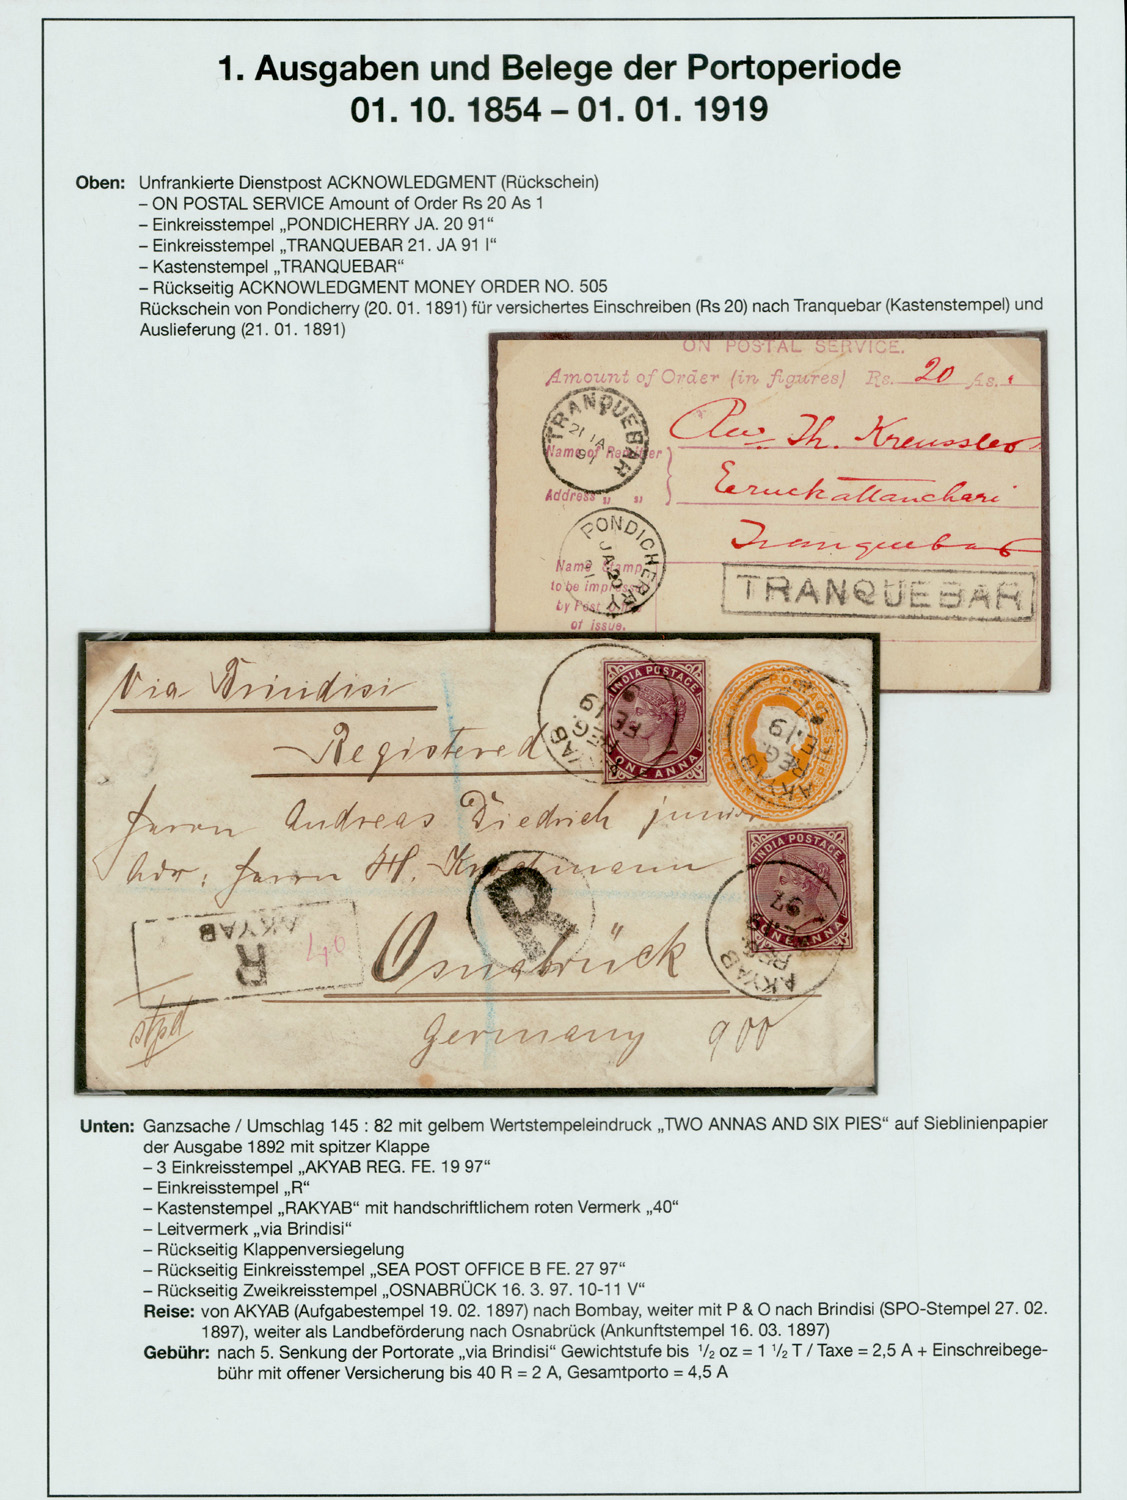 1. Ausgaben und Belege der Portoperiode
01. 10. 1854 – 01. 01. 1919
Oben: Unfrankierte Dienstpost ACKNOWLEDGMENT (Rückschein)
– ON POSTAL SERVICE Amount of Order Rs 20 As 1
– Einkreisstempel „PONDICHERRY JA. 20 91“
– Einkreisstempel „TRANQUEBAR 21. JA 91 I“
– Kastenstempel „TRANQUEBAR“
– Rückseitig ACKNOWLEDGMENT MONEY ORDER NO. 505
Rückschein von Pondicherry (20. 01. 1891) für versichertes Einschreiben (Rs 20) nach Tranquebar (Kastenstempel) und
Auslieferung (21. 01. 1891)
ON POSTAL SERVICE.
Amount of Order (in figures) Rs. 20 As.
TRANQUEBAR
21 JA
91
Rev. Th. Kreussler
Name of Remitter
Address „ „
Tranquebar
PONDICHERRY
JA 20
91
Name Stamp
to be impressed
by Post
of issue.
TRANQUEBAR
Via Brindisi
Registered
INDIA POSTAGE
ONE ANNA
AKYAB
REG.
FE 19
AKYAB
REG.
FE 19
Herrn Andreas Diedrich junior
Adr: Herrn H.
INDIA POSTAGE
ONE ANNA
AKYAB
REG.
FE 19
97
R
R
AKYAB
40
Osnabrück
Germany 900
Unten: Ganzsache / Umschlag 145 : 82 mit gelbem Wertstempeleindruck „TWO ANNAS AND SIX PIES“ auf Sieblinienpapier
der Ausgabe 1892 mit spitzer Klappe
– 3 Einkreisstempel „AKYAB REG. FE. 19 97“
– Einkreisstempel „R“
– Kastenstempel „RAKYAB“ mit handschriftlichem roten Vermerk „40“
– Leitvermerk „via Brindisi“
– Rückseitig Klappenversiegelung
– Rückseitig Einkreisstempel „SEA POST OFFICE B FE. 27 97“
– Rückseitig Zweikreisstempel „OSNABRÜCK 16. 3. 97. 10-11 V“
Reise: von AKYAB (Aufgabestempel 19. 02. 1897) nach Bombay, weiter mit P & O nach Brindisi (SPO-Stempel 27. 02.
1897), weiter als Landbeförderung nach Osnabrück (Ankunftstempel 16. 03. 1897)
Gebühr: nach 5. Senkung der Portorate „via Brindisi“ Gewichtstufe bis 1/2 oz = 1 1/2 T / Taxe = 2,5 A + Einschreibege-
bühr mit offener Versicherung bis 40 R = 2 A, Gesamtporto = 4,5 A